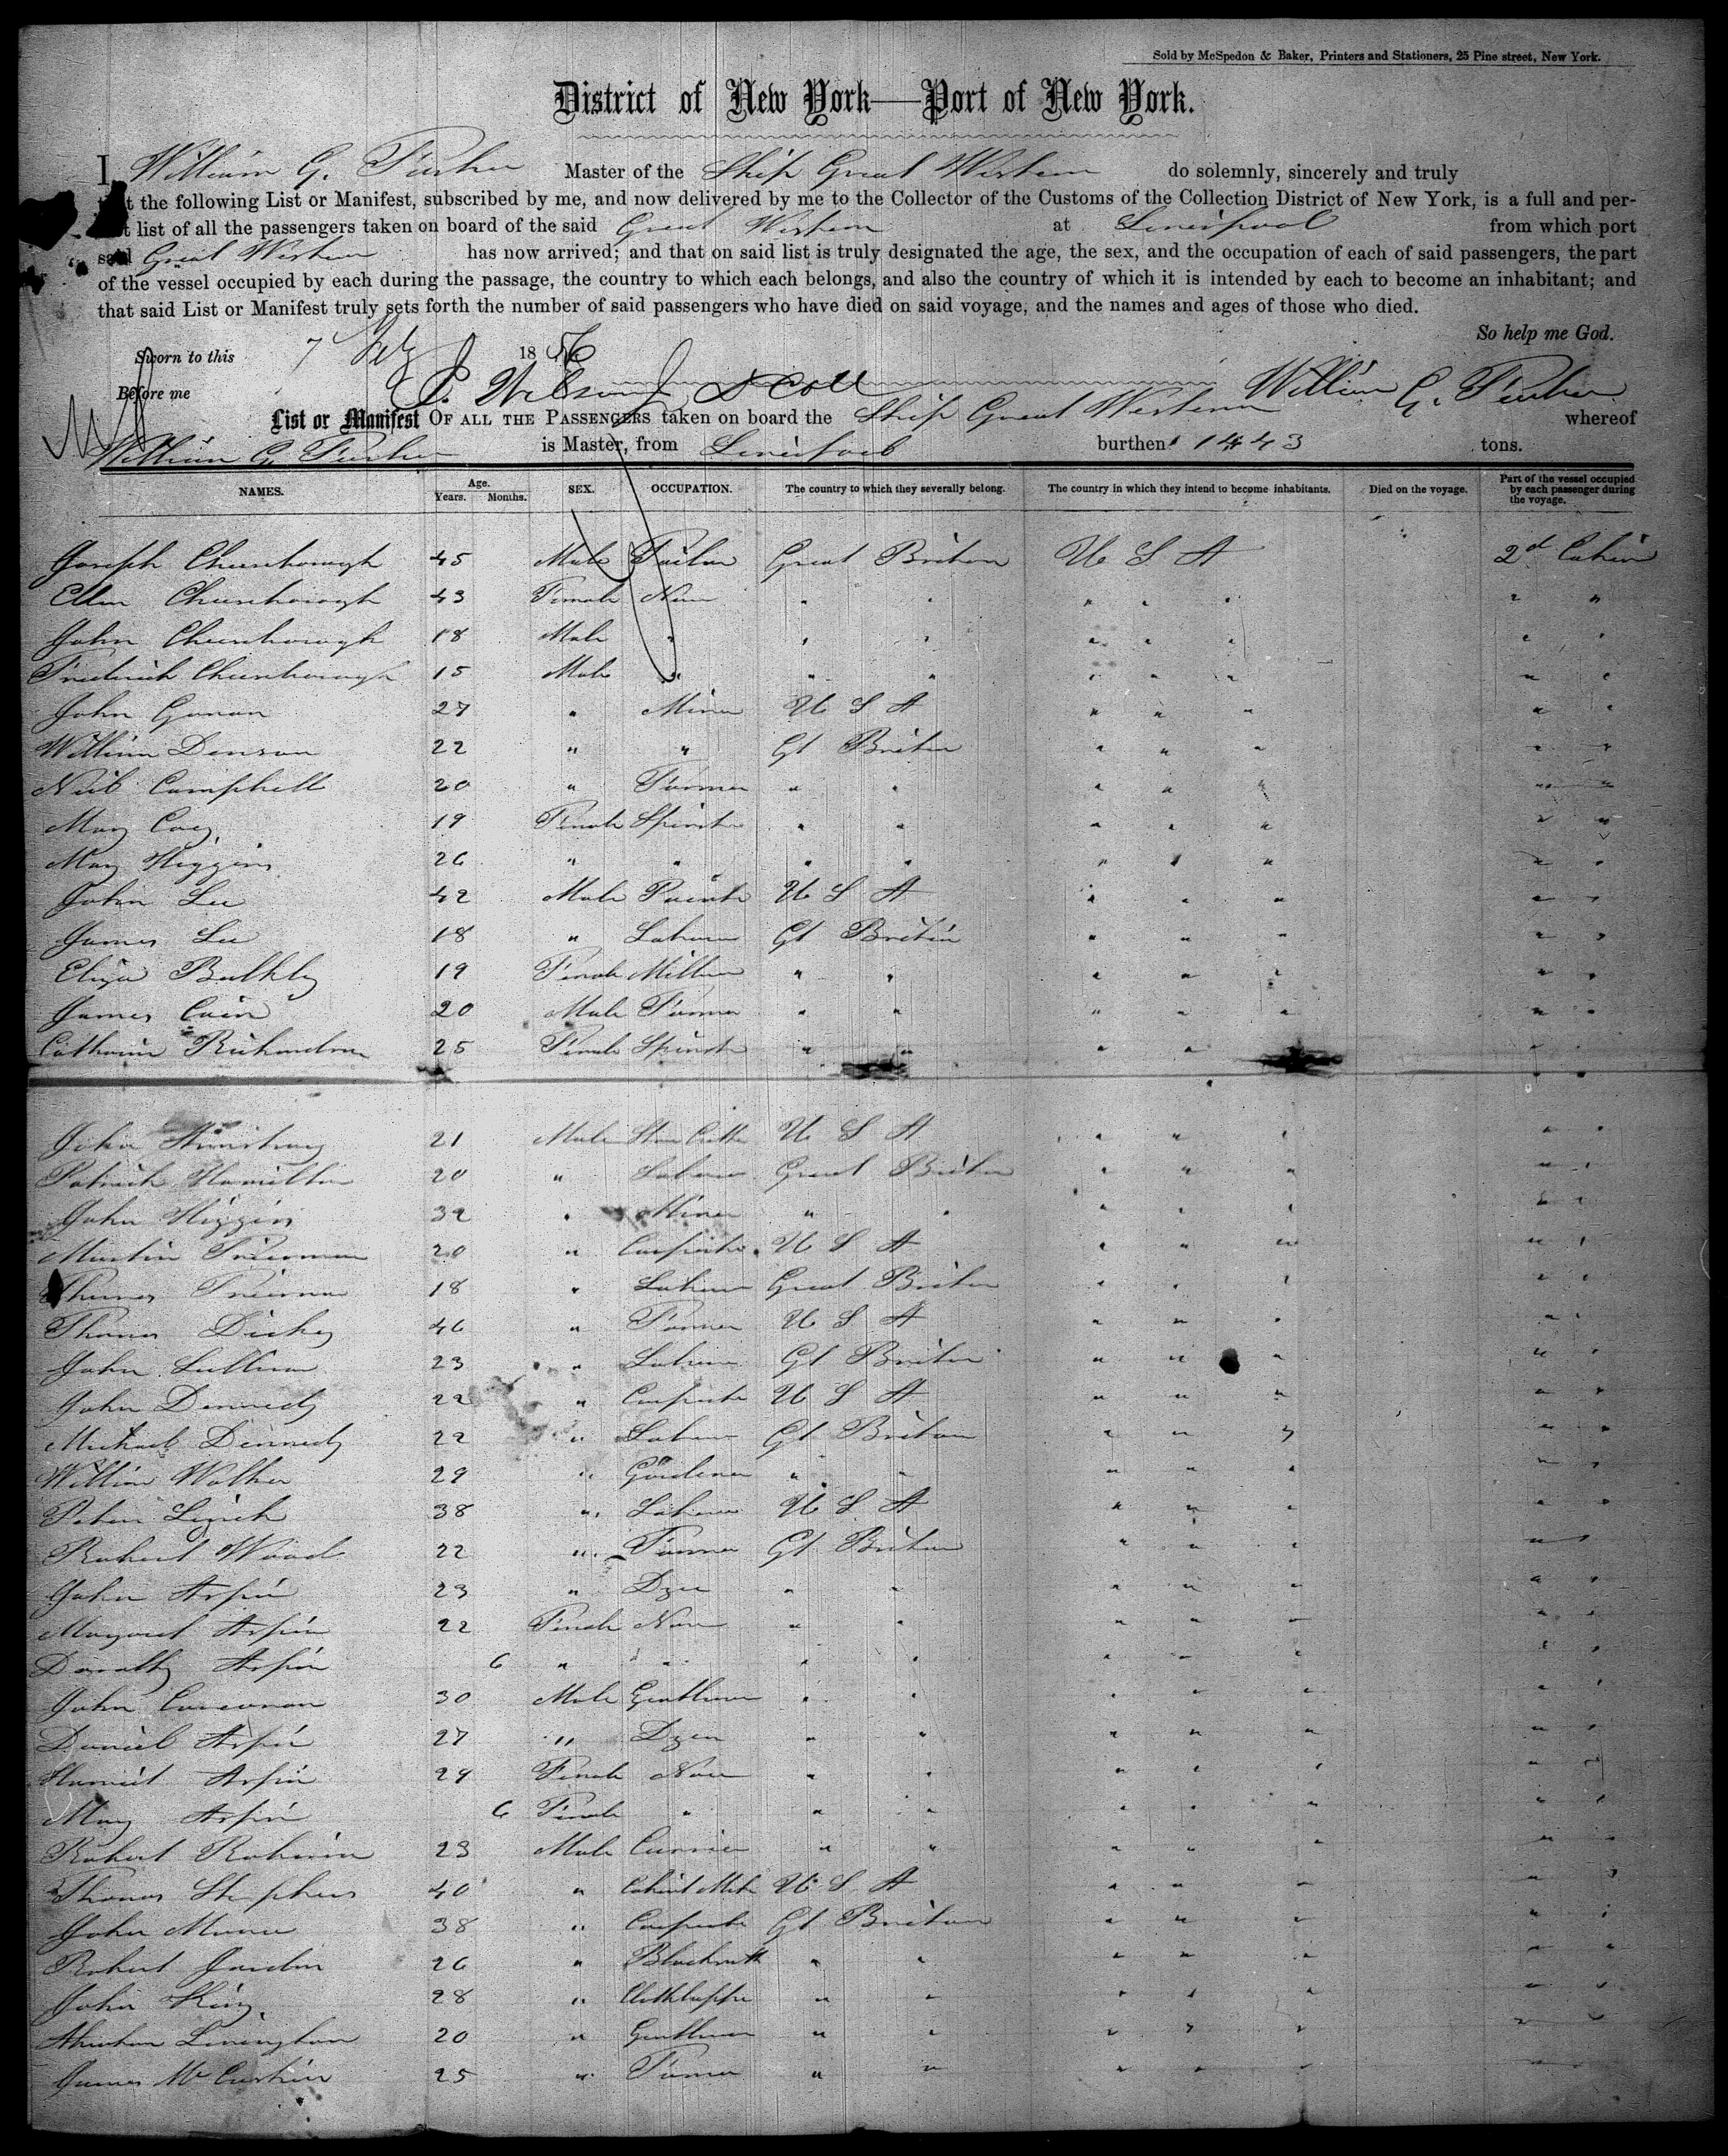 Sold by McSpedon & Baker, Printers and Stationers, 25 Pine street, New York.
District of New York—Port of New York.
I, William G. Master of the Ship Great Western do solemnly, sincerely and truly
the following List or Manifest, subscribed by me, and now delivered by me to the Collector of the Customs of the Collection District of New York, is a full and per-
list of all the passengers taken on board of the said Great Western at Liverpool from which port
said Great Western has now arrived; and that on said list is truly designated the age, the sex, and the occupation of each of said passengers, the part
of the vessel occupied by each during the passage, the country to which each belongs, and also the country of which it is intended by each to become an inhabitant; and
that said List or Manifest truly sets forth the number of said passengers who have died on said voyage, and the names and ages of those who died.
So help me God.
Sworn to this 7 1856
Before me William G.
List or Manifest OF ALL THE PASSENGERS taken on board the Ship Great Western whereof
William G. is Master, from Liverpool burthen 1443 tons.
NAMES. Age. Years. Months. SEX. OCCUPATION. The country to which they severally belong. The country in which they intend to become inhabitants. Died on the voyage. Part of the vessel occupied by each passenger during the voyage.
Joseph Cheesborough 45 Male Great Britain U S A 2d Cabin
Ellen Cheesborough 43 Female None " " " " " " "
John Cheesborough 18 Male " " " " " " " "
Frederick Cheesborough 15 Male " " " " " " " "
John 27 " Miner U S A " " " " "
William Denson 22 " " Gt Britain " " " " "
Neil Campbell 20 " Farmer " " " " " " "
Mary 19 Female Spinster " " " " " " "
Mary Higgins 26 " " " " " " " " "
John Lee 42 Male Painter U S A " " " " "
James Lee 18 " Laborer Gt Britain " " " " "
Eliza Bulkley 19 Female Milliner " " " " " " "
James Cain 20 Male Farmer " " " " " " "
Catharine Richardson 25 Female Spinster " " " " " "
John Armstrong 21 Male Stone Cutter U S A " " " " "
Patrick Hamilton 20 " Laborer Great Britain " " " " "
John Higgins 32 " Miner " " " " " " "
Martin 20 " Carpenter U S A " " " " "
Thomas 18 " Laborer Great Britain " " " " "
Thomas Dickey 46 " Farmer U S A " " " " "
John Sullivan 23 " Laborer Gt Britain " " " " "
John Dennedy 22 " Carpenter U S A " " " " "
Michael Dennedy 22 " Laborer Gt Britain " " " " "
William Walker 29 " Gardener " " " " " " "
Peter Linch 38 " Laborer U S A " " " " "
Robert Wood 22 " Farmer Gt Britain " " " " "
John Aspin 23 " Dyer " " " " " " "
Margaret Aspin 22 Female None " " " " " " "
Dorathy Aspin 6 " " " " " " " " "
John Corcoran 30 Male Gentleman " " " " " " "
Daniel Aspin 27 " Dyer " " " " " " "
Harriet Aspin 24 Female None " " " " " " "
Mary Aspin 6 Female " " " " " " " "
Robert 23 Male Currier " " " " " " "
Thomas Stephens 40 " Cabinet Maker U S A " " " " "
John 38 " Carpenter Gt Britain " " " " "
Robert 26 " Blacksmith " " " " " " "
John King 28 " " " " " " " "
Abraham Livingston 20 " Gentleman " " " " " " "
James 25 " Farmer " " " " "